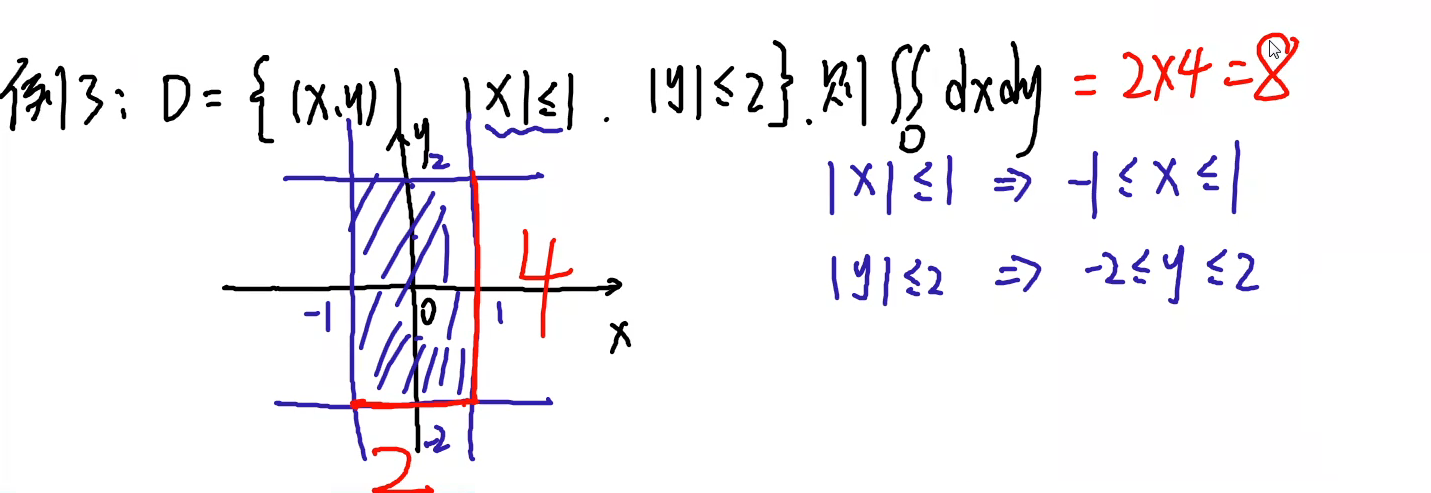 例3: D = { (x,y) | |x|≤1 . |y|≤2 }. 则 ∬_D dxdy = 2×4 = 8
|x|≤1 ⇒ -1≤x≤1
|y|≤2 ⇒ -2≤y≤2
y
2
4
-1
0
1
x
-2
2